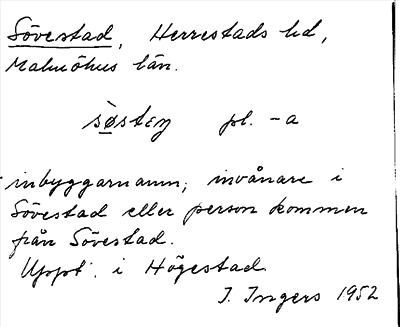 Sövestad, Herrestads hd,
Malmöhus län.
sø̀stɛŋ pl. -a
inbyggarnamn; invånare i
Sövestad eller person kommen
från Sövestad.
Uppt. i Högestad
I. Ingers 1952